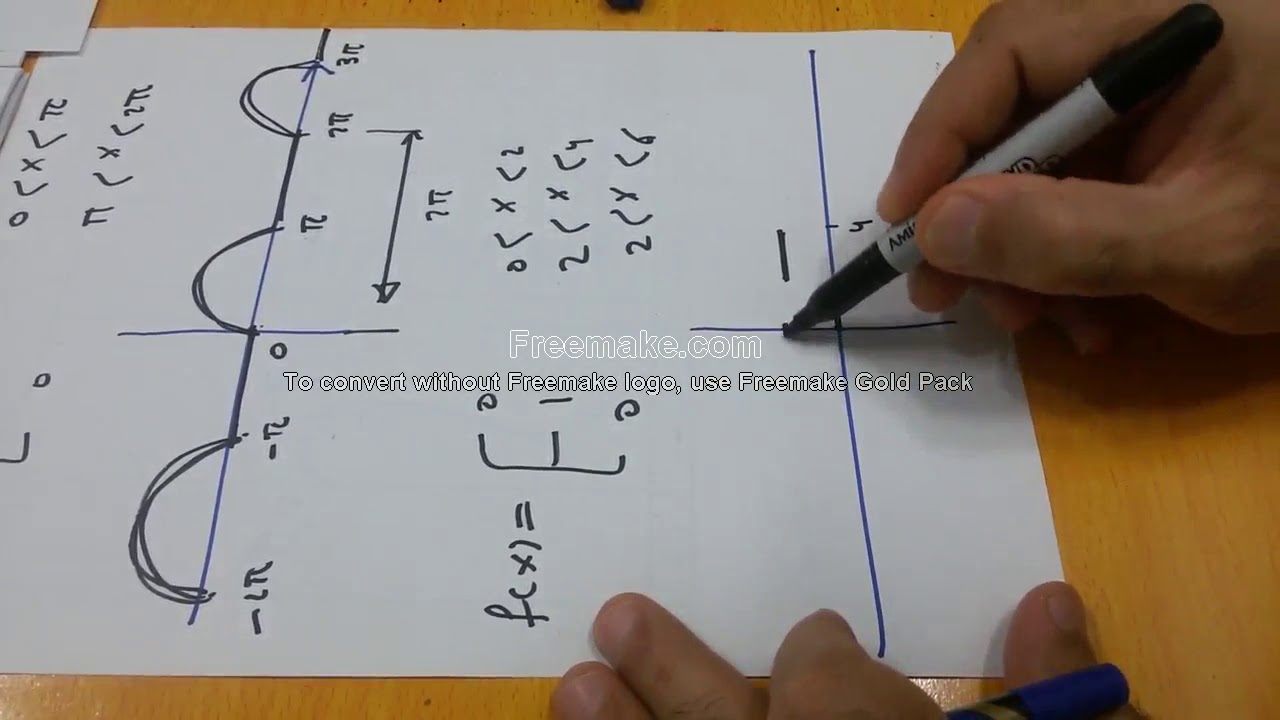 0<x<π
0 π<x<2π
-2π -π 0 π 2π 3π
2π
0 0<x<2
f(x)= 1 2<x<4
0 2<x<6
4
Freemake.com
To convert without Freemake logo, use Freemake Gold Pack